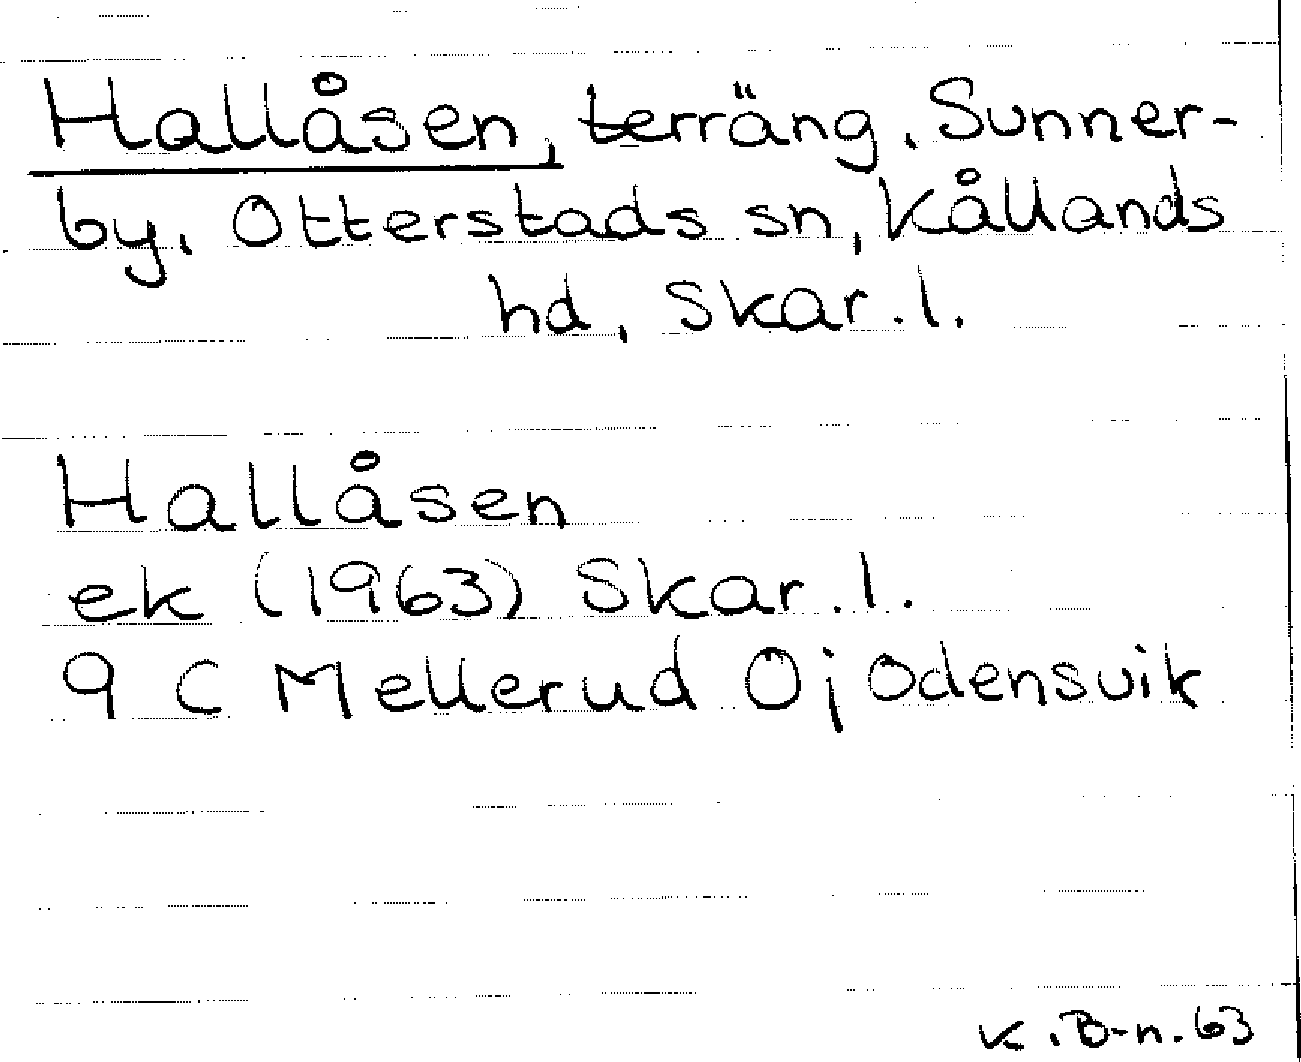 Hallåsen, terräng, Sunner-
by, Otterstads sn, Kållands
hd, Skar.l.
Hallåsen
ek (1963) Skar.l.
9 C Mellerud Oj Odensvik
K.B-n.63